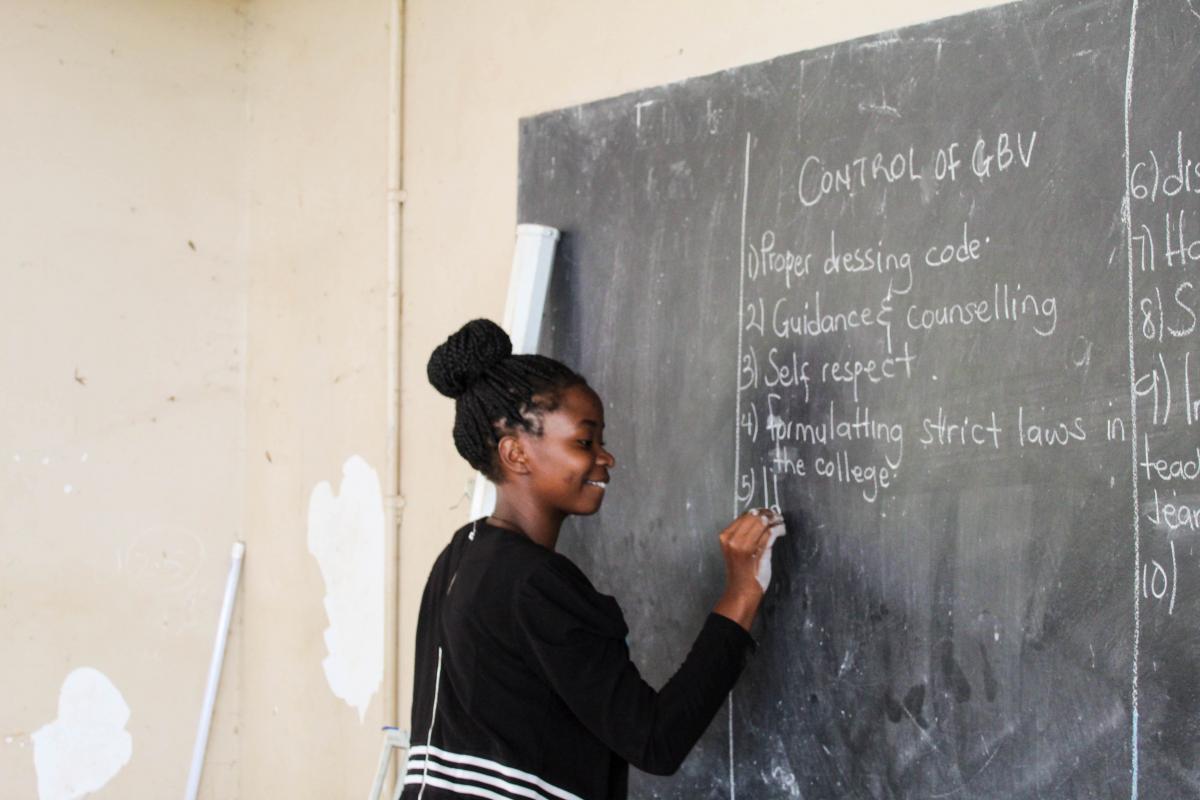 CONTROL OF GBV
1) Proper dressing code.
2) Guidance & counselling
3) Self respect.
4) formulatting strict laws in
the college.
5)
6) dis
7) Ho
8) S
9)
teac
lear
10)